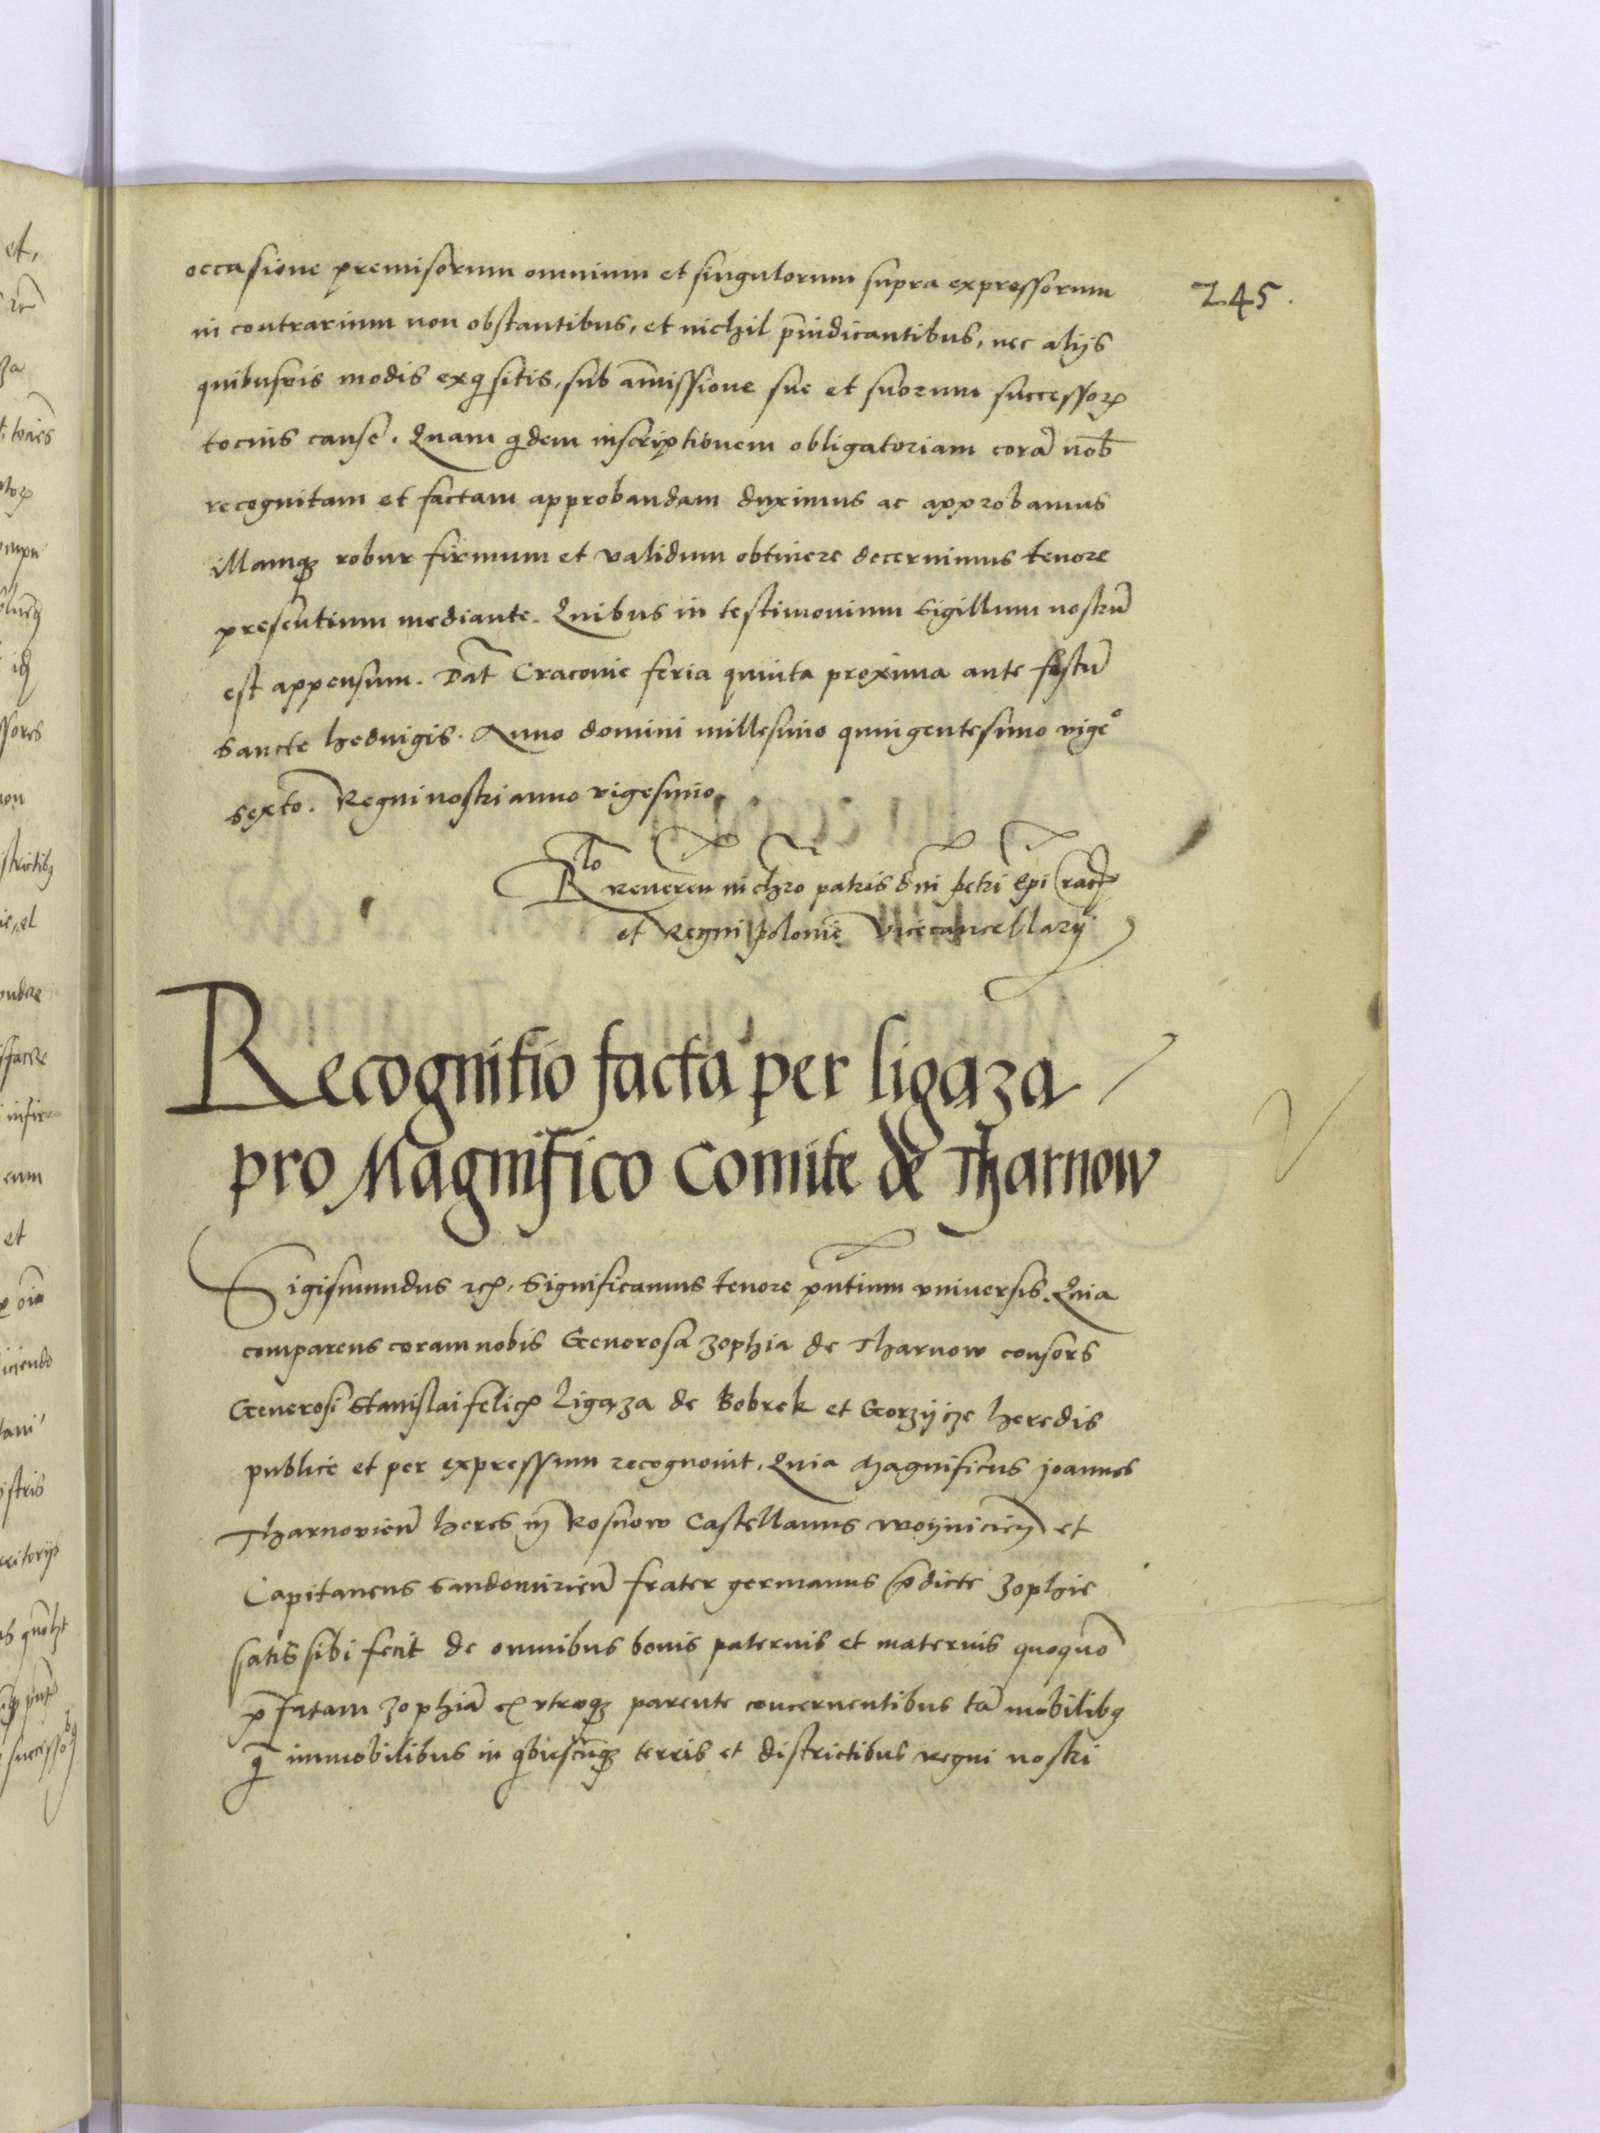 occasione premisorum omnium et singulorum supra expressorum
245.
in contrarium non obstantibus, et nichil p̄iudicantibus, nec alijs
quibusvis modis exqsitis, sub am̄issione sue et suorum successoꝝ
tocius cause. Quam qdem inscriptionem obligatoriam corā nob̄
recognitam et factam approbandam duximus ac approbamus
illamqꝫ robur firmum et validum obtinere decernimus tenore
presentium mediante. Quibus in testimonium Sigillum nostrū
est appensum. Dat̄ Cracovie feria quinta proxima ante festū
Sancte hedvigis. Anno domini millesimo quingentesimo vigeº
sexto. Regni nostri anno vigesimo.
Rlo reveren in chro patris dn̄i petri Epi Crac̄
et Regni polonie vicecancellarij
Recognitio facta per ligaza
pro Magnifico Comite de Tharnow
Sigismundus rcꝭ. Significamus tenore pn̄tium vniversis. Quia
comparens coram nobis Generosa Zophia de Tharnow consors
Generosi Stanislai felicꝭ Ligąza de Bobrek et Gorzijcze heredis
publice et per expressum recognovit. Quia Magnificus joannes
Tharnovien̄ heres in Rosnow Castellanus woynicien̄ et
Capitaneus Sandomirien̄ frater germanus p̄dicte Zophie
satis sibi fecit de omnibus bonis paternis et maternis quoquō
p̄fatam Zophiā ex vtroqꝫ parente concernentibus tā mobilibꝰ
q̄ immobilibus in qbuscūqꝫ terris et districtibus regni nostri